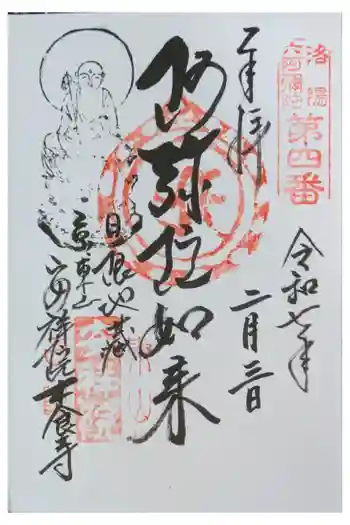 洛陽
六阿弥陀
第四番
奉拝
令和七年
二月三日
阿弥陀如来
日限地蔵
京東山
安祥院
木食寺